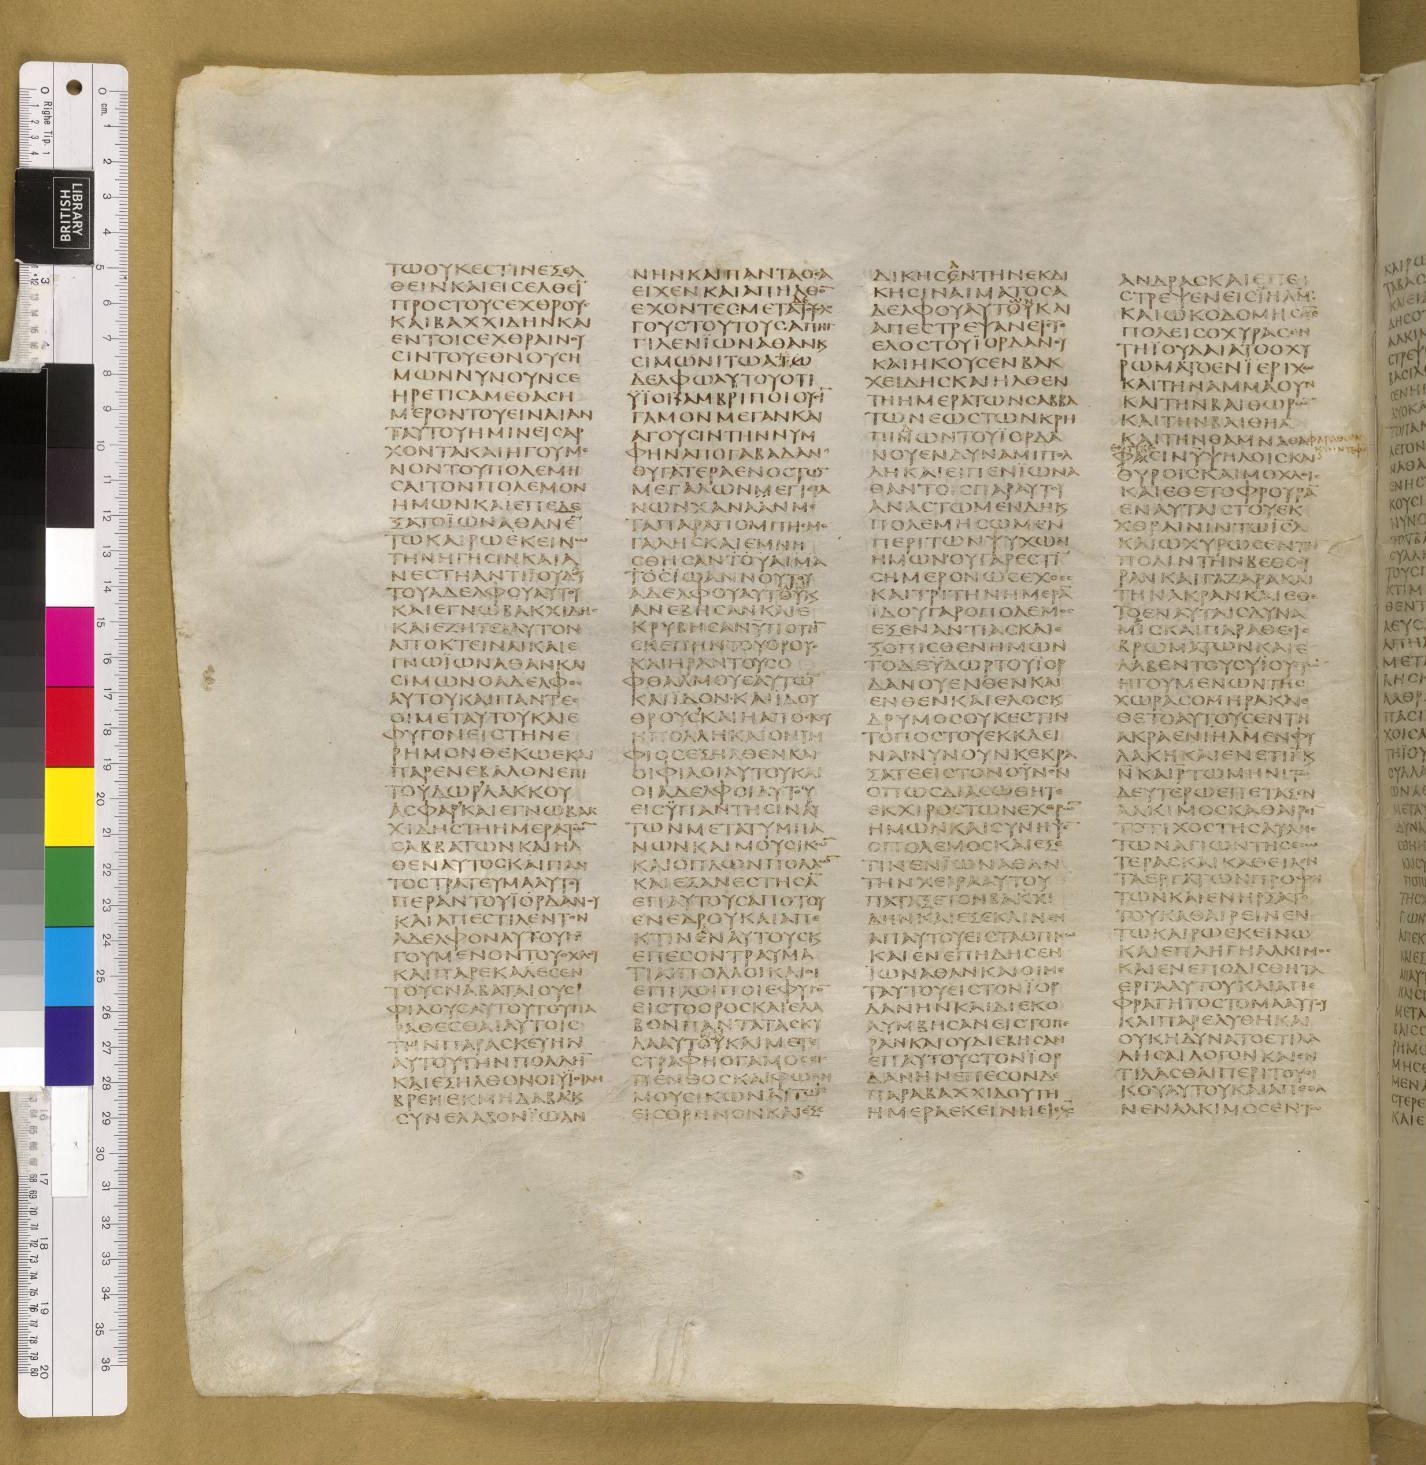 ΤΩΟΥΚΕϹΤΙΝΕΞΕΛ
ΘΕΙΝΚΑΙΕΙϹΕΛΘΕΙ
ΠΡΟϹΤΟΥϹΕΧΘΡΟΥ
ΚΑΙΒΑΧΧΙΔΗΝΚΑΙ
ΕΝΤΟΙϹΕΧΘΡΑΙΝΟΥ
ϹΙΝΤΟΥΕΘΝΟΥϹΗ
ΜΩΝΝΥΝΟΥΝϹΕ
ΗΡΕΤΙϹΑΜΕΘΑϹΗ
ΜΕΡΟΝΤΟΥΕΙΝΑΙΑΝ
ΤΑΥΤΟΥΗΜΙΝΕΙϹΑΡ
ΧΟΝΤΑΚΑΙΗΓΟΥΜΕ
ΝΟΝΤΟΥΠΟΛΕΜΗ
ϹΑΙΤΟΝΠΟΛΕΜΟΝ
ΗΜΩΝΚΑΙΕΠΕΔΕ
ΞΑΤΟΪΩΝΑΘΑΝΕ
ΤΩΚΑΙΡΩΕΚΕΙΝΩ
ΤΗΝΗΓΗϹΙΝΚΑΙΑ
ΝΕϹΤΗΑΝΤΙΪΟΥΔΑ
ΤΟΥΑΔΕΛΦΟΥΑΥΤΟΥ
ΚΑΙΕΓΝΩΒΑΚΧΙΔΗϹ
ΚΑΙΕΖΗΤΕΙΑΥΤΟΝ
ΑΠΟΚΤΕΙΝΑΙΚΑΙΕ
ΓΝΩΪΩΝΑΘΑΝΚΑΙ
ϹΙΜΩΝΟΑΔΕΛΦΟϹ
ΑΥΤΟΥΚΑΙΠΑΝΤΕϹ
ΟΙΜΕΤΑΥΤΟΥΚΑΙΕ
ΦΥΓΟΝΕΙϹΤΗΝΕ
ΡΗΜΟΝΘΕΚΩΕΚΑΙ
ΠΑΡΕΝΕΒΑΛΟΝΕΠΙ
ΤΟΥΔΩΡΛΑΚΚΟΥ
ΑϹΦΑΡΚΑΙΕΓΝΩΒΑΚ
ΧΙΔΗϹΤΗΗΜΕΡΑΤΩ
ϹΑΒΒΑΤΩΝΚΑΙΗΛ
ΘΕΝΑΥΤΟϹΚΑΙΠΑΝ
ΤΟϹΤΡΑΤΕΥΜΑΑΥΤΟΥ
ΠΕΡΑΝΤΟΥΪΟΡΔΑΝΟΥ
ΚΑΙΑΠΕϹΤΙΛΕΝΤΟΝ
ΑΔΕΛΦΟΝΑΥΤΟΥΗ
ΓΟΥΜΕΝΟΝΤΟΥΟΧΛΟΥ
ΚΑΙΠΑΡΕΚΑΛΕϹΕΝ
ΤΟΥϹΝΑΒΑΤΑΙΟΥϹ
ΦΙΛΟΥϹΑΥΤΟΥΤΟΥΠΑ
ΡΑΘΕϹΘΑΙΑΥΤΟΙϹ
ΤΗΝΠΑΡΑϹΚΕΥΗΝ
ΑΥΤΟΥΤΗΝΠΟΛΛΗ
ΚΑΙΕΞΗΛΘΟΝΟΙΥΪΟΙΙΑΜ
ΒΡΕΙΗΕΚΜΗΔΑΒΑΚ
ϹΥΝΕΛΑΒΟΝΪΩΑΝ
ΝΗΝΚΑΙΠΑΝΤΑΟϹΑ
ΕΙΧΕΝΚΑΙΑΠΗΛΘΟ
ΕΧΟΝΤΕϹΜΕΤΑ
ΓΟΥϹΤΟΥΤΟΥϹΑΠΗΓ
ΓΙΛΕΝΪΩΝΑΘΑΝΚ
ϹΙΜΩΝΙΤΩΑ
ΔΕΛΦΩΑΥΤΟΥΟΤΙ
ΥΪΟΙΪΑΜΒΡΙΠΟΙΟΥϹΙ
ΓΑΜΟΝΜΕΓΑΝΚΑΙ
ΑΓΟΥϹΙΝΤΗΝΝΥΜ
ΦΗΝΑΠΟΓΑΒΑΔΑΝ
ΘΥΓΑΤΕΡΑΕΝΟϹΤΩ
ΜΕΓΑΛΩΝΜΕΓΙϹΤΑ
ΝΩΝΧΑΝΑΑΝΜΕ
ΤΑΠΑΡΑΠΟΜΠΗϹΜΕ
ΓΑΛΗϹΚΑΙΕΜΝΗ
ϹΘΗϹΑΝΤΟΥΑΙΜΑ
ΤΟϹΪΩΑΝΝΟΥΤΟΥ
ΑΔΕΛΦΟΥΑΥΤΟΥΚ
ΑΝΕΒΗϹΑΝΚΑΙΕ
ΚΡΥΒΗϹΑΝΥΠΟΤΗ
ϹΚΕΠΗΝΤΟΥΟΡΟΥϹ
ΚΑΙΗΡΑΝΤΟΥϹΟ
ΦΘΑΛΜΟΥϹΑΥΤΩ
ΚΑΙΪΔΟΝΚΑΙΪΔΟΥ
ΘΡΟΥϹΚΑΙΗΑΠΟϹΚΕΥ
ΗΠΟΛΛΗΚΑΙΟΝΥΜ
ΦΙΟϹΕΞΗΛΘΕΝΚΑΙ
ΟΙΦΙΛΟΙΑΥΤΟΥΚΑΙ
ΟΙΑΔΕΛΦΟΙΑΥΤΟΥ
ΕΙϹΥΠΑΝΤΗϹΙΝΑΥ
ΤΩΝΜΕΤΑΤΥΜΠΑ
ΝΩΝΚΑΙΜΟΥϹΙΚΩ
ΚΑΙΟΠΛΩΝΠΟΛΛΩ
ΚΑΙΕΞΑΝΕϹΤΗϹΑ
ΕΠΑΥΤΟΥϹΑΠΟΤΟΥ
ΕΝΕΔΡΟΥΚΑΙΑΠΕ
ΚΤΙΝΕΝΑΥΤΟΥϹΚ
ΕΠΕϹΟΝΤΡΑΥΜΑ
ΤΙΑΙΠΟΛΛΟΙΚΑΙΟΙ
ΕΠΙΛΟΙΠΟΙΕΦΥΓΟ
ΕΙϹΤΟΟΡΟϹΚΑΙΕΛΑ
ΒΟΝΠΑΝΤΑΤΑϹΚΥ
ΛΑΑΥΤΟΥΚΑΙΜΕΤΕ
ϹΤΡΑΦΗΟΓΑΜΟϹΕΙϹ
ΠΕΝΘΟϹΚΑΙΦΩΝΗ
ΜΟΥϹΙΚΩΝΑΥΤΩ
ΕΙϹΘΡΗΝΟΝΚΑΙΕΞΕ
ΔΙΚΗϹΕΝΤΗΝΕΚΔΙ
ΚΗϹΙΝΑΙΜΑΤΟϹΑ
ΔΕΛΦΟΥΑΥΤΟΥΚΑΙ
ΑΠΕϹΤΡΕΨΑΝΕΙϹΤΟ
ΕΛΟϹΤΟΥΪΟΡΔΑΝΟΥ
ΚΑΙΗΚΟΥϹΕΝΒΑΚ
ΧΕΙΔΗϹΚΑΙΗΛΘΕΝ
ΤΗΗΜΕΡΑΤΩΝϹΑΒΒΑ
ΤΩΝΕΩϹΤΩΝΚΡΗ
ΠΙΔΩΝΤΟΥΪΟΡΔΑ
ΝΟΥΕΝΔΥΝΑΜΙΠΟΛ
ΛΗΚΑΙΕΙΠΕΝΪΩΝΑ
ΘΑΝΤΟΙϹΠΑΡΑΥΤΟΥ
ΑΝΑϹΤΩΜΕΝΔΗΚ
ΠΟΛΕΜΗϹΩΜΕΝ
ΠΕΡΙΤΩΝΨΥΧΩΝ
ΗΜΩΝΟΥΓΑΡΕϹΤΙ
ϹΗΜΕΡΟΝΩϹΕΧΘΕϹ
ΚΑΙΤΡΙΤΗΝΗΜΕΡΑ
ΪΔΟΥΓΑΡΟΠΟΛΕΜΟϹ
ΕΞΕΝΑΝΤΙΑϹΚΑΙΕ
ΞΟΠΙϹΘΕΝΗΜΩΝ
ΤΟΔΕΥΔΩΡΤΟΥΪΟΡ
ΔΑΝΟΥΕΝΘΕΝΚΑΙ
ΕΝΘΕΝΚΑΙΕΛΟϹΚ
ΔΡΥΜΟϹΟΥΚΕϹΤΙΝ
ΤΟΠΟϹΤΟΥΕΚΚΛΕΙ
ΝΑΙΝΥΝΟΥΝΚΕΚΡΑ
ΞΑΤΕΕΙϹΤΟΝΟΥΝΟΝ
ΟΠΩϹΔΙΑϹΩΘΗΤΕ
ΕΚΧΙΡΟϹΤΩΝΕΧΘΡΩ
ΗΜΩΝΚΑΙϹΥΝΗΨΕ
ΟΠΟΛΕΜΟϹΚΑΙΕΞΕ
ΤΙΝΕΝΪΩΝΑΘΑΝ
ΤΗΝΧΕΙΡΑΑΥΤΟΥ
ΠΑΤΑΞΕΤΟΝΒΑΚΧΙ
ΔΗΝΚΑΙΕΞΕΚΛΙΝΕΝ
ΑΠΑΥΤΟΥΕΙϹΤΑΟΠΙϹΩ
ΚΑΙΕΝΕΠΗΔΗϹΕΝ
ΪΩΝΑΘΑΝΚΑΙΟΙΜΕ
ΤΑΥΤΟΥΕΙϹΤΟΝΪΟΡ
ΔΑΝΗΝΚΑΙΔΙΕΚΟ
ΛΥΜΒΗϹΑΝΕΙϹΤΟΠΕ
ΡΑΝΚΑΙΟΥΔΙΕΒΗϹΑΝ
ΕΠΑΥΤΟΥϹΤΟΝΪΟΡ
ΔΑΝΗΝΕΠΕϹΟΝΔΕ
ΠΑΡΑΒΑΧΧΙΔΟΥΤΗ
ΗΜΕΡΑΕΚΕΙΝΗΕΙϹΧ
ΑΝΔΡΑϹΚΑΙΕΠΕ
ϹΤΡΕΨΕΝΕΙϹΪΗΛΜ
ΚΑΙΩΚΟΔΟΜΗϹΕ
ΠΟΛΕΙϹΟΧΥΡΑϹΕΝ
ΤΗΪΟΥΔΑΙΑΤΟΟΧΥ
ΡΩΜΑΤΟΕΝΪΕΡΙΧΩ
ΚΑΙΤΗΝΑΜΜΑΟΥΝ
ΚΑΙΤΗΝΒΑΙΘΩΡΩ
ΚΑΙΤΗΝΒΑΙΘΗΛ
ΚΑΙΤΗΝΘΑΜΝΑΘΑ
ΦΑϹΙΝΥΨΗΛΟΙϹΚΑΙ
ΘΥΡΟΙϹΚΑΙΜΟΧΛΟΙϹ
ΚΑΙΕΘΕΤΟΦΡΟΥΡΑ
ΕΝΑΥΤΑΙϹΤΟΥΕΚ
ΧΘΡΑΙΝΙΝΤΩΪϹΛ
ΚΑΙΩΧΥΡΩϹΕΝΤΗ
ΠΟΛΙΝΤΗΝΒΕΘϹΟΥ
ΡΑΝΚΑΙΓΑΖΑΡΑΚΑΙ
ΤΗΝΑΚΡΑΝΚΑΙΕΘΕ
ΤΟΕΝΑΥΤΑΙϹΔΥΝΑ
ΜΙϹΚΑΙΠΑΡΑΘΕϹΙϹ
ΒΡΩΜΑΤΩΝΚΑΙΕ
ΛΑΒΕΝΤΟΥϹΥΪΟΥϹΤΩ
ΗΓΟΥΜΕΝΩΝΤΗϹ
ΧΩΡΑϹΟΜΗΡΑΚΑΙΕ
ΘΕΤΟΑΥΤΟΥϹΕΝΤΗ
ΑΚΡΑΕΝΙΗΛΜΕΝΦΥ
ΛΑΚΗΚΑΙΕΝΕΤΙΓΚ
ΝΚΑΙΓΤΩΜΗΝΙΤΩ
ΔΕΥΤΕΡΩΕΠΕΤΑΞΕΝ
ΑΛΚΙΜΟϹΚΑΘΑΙΡΙ
ΤΟΤΙΧΟϹΤΗϹΑΥΛΗϹ
ΤΩΝΑΓΙΩΝΤΗϹΕϹΩ
ΤΕΡΑϹΚΑΙΚΑΘΕΙΛΕΝ
ΤΑΕΡΓΑΤΩΝΠΡΟΦΗ
ΤΩΝΚΑΙΕΝΗΡΞΑΤΟ
ΤΟΥΚΑΘΑΙΡΕΙΝΕΝ
ΤΩΚΑΙΡΩΕΚΕΙΝΩ
ΚΑΙΕΠΛΗΓΗΑΛΚΙΜΟϹ
ΚΑΙΕΝΕΠΟΔΙϹΘΗΤΑ
ΕΡΓΑΑΥΤΟΥΚΑΙΑΠΕ
ΦΡΑΓΗΤΟϹΤΟΜΑΑΥΤΟΥ
ΚΑΙΠΑΡΕΛΥΘΗΚΑΙ
ΟΥΚΗΔΥΝΑΤΟΕΤΙΛΑ
ΛΗϹΑΙΛΟΓΟΝΚΑΙΕΝ
ΤΙΛΑϹΘΑΙΠΕΡΙΤΟΥΟΙ
ΚΟΥΑΥΤΟΥΚΑΙΑΠΕΘΑ
ΝΕΝΑΛΚΙΜΟϹΕΝΤΩ
BRITISH
LIBRARY